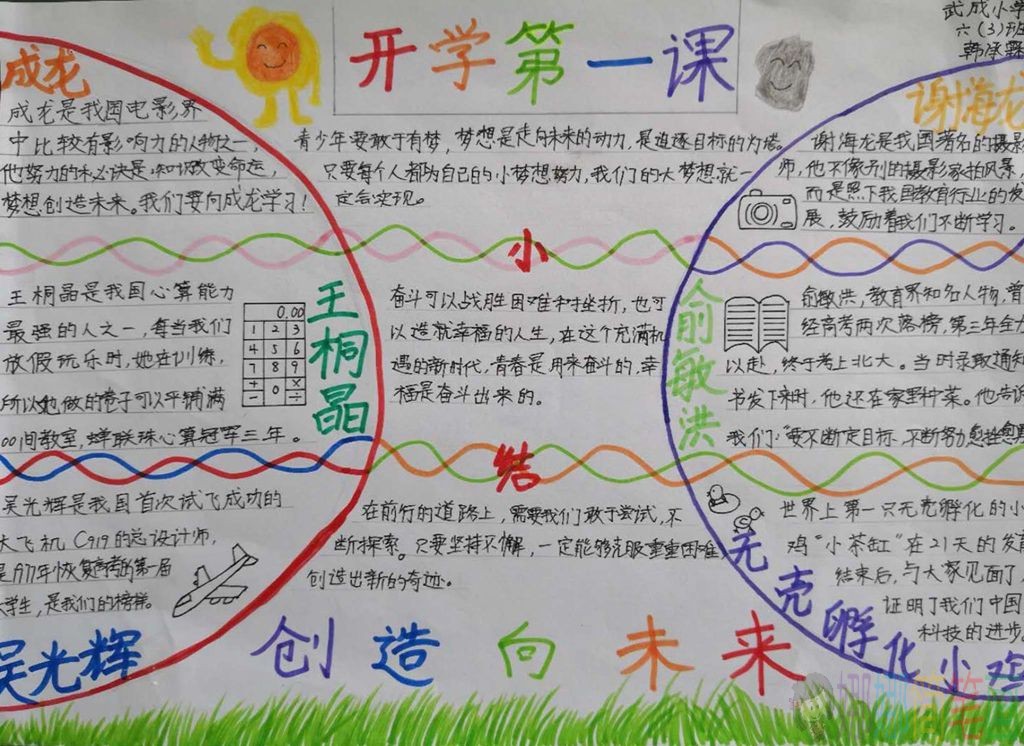 开学第一课
武成小学
六(3)班
成龙
成龙是我国电影界
中比较有影响力的人物之一,
他努力的秘诀是知识改变命运,
梦想创造未来。我们要向成龙学习!
青少年要敢于有梦,梦想是走向未来的动力,是追逐目标的灯塔。
只要每个人都为自己的小梦想努力,我们的大梦想就一
定会实现。
谢海龙
谢海龙是我国著名的摄影
师,他不像别的摄影家拍风景,
而是照下我国教育行业的发
展,鼓励着我们不断学习。
王桐晶是我国心算能力
最强的人之一,每当我们
放假玩乐时,她在训练,
所以她做的卷子可以平铺满
00间教室,蝉联珠心算冠军三年。
王桐晶
0.00
1 2 3
4 5 6
7 8 9
+ ×
- 0 ÷
小
奋斗可以战胜困难和挫折,也可
以造就幸福的人生,在这个充满机
遇的新时代,青春是用来奋斗的,幸
福是奋斗出来的。
结
俞敏洪
俞敏洪,教育界知名人物,曾
经高考两次落榜,第三年全力
以赴,终于考上北大。当时录取通知
书发下来时,他还在家里种菜。他告诉
我们:“要不断定目标,不断努力,愈挫愈勇
吴光辉是我国首次试飞成功的
大飞机C919的总设计师,
是1977年恢复高考的第一届
大学生,是我们的榜样。
吴光辉
在前行的道路上,需要我们敢于尝试,不
断探索。只要坚持不懈,一定能够克服重重困难,
创造出新的奇迹。
世界上第一只无壳孵化的小
鸡“小茶缸”在21天的发育
结束后,与大家见面了,
证明了我们中国
科技的进步
无壳孵化小鸡
创造向未来